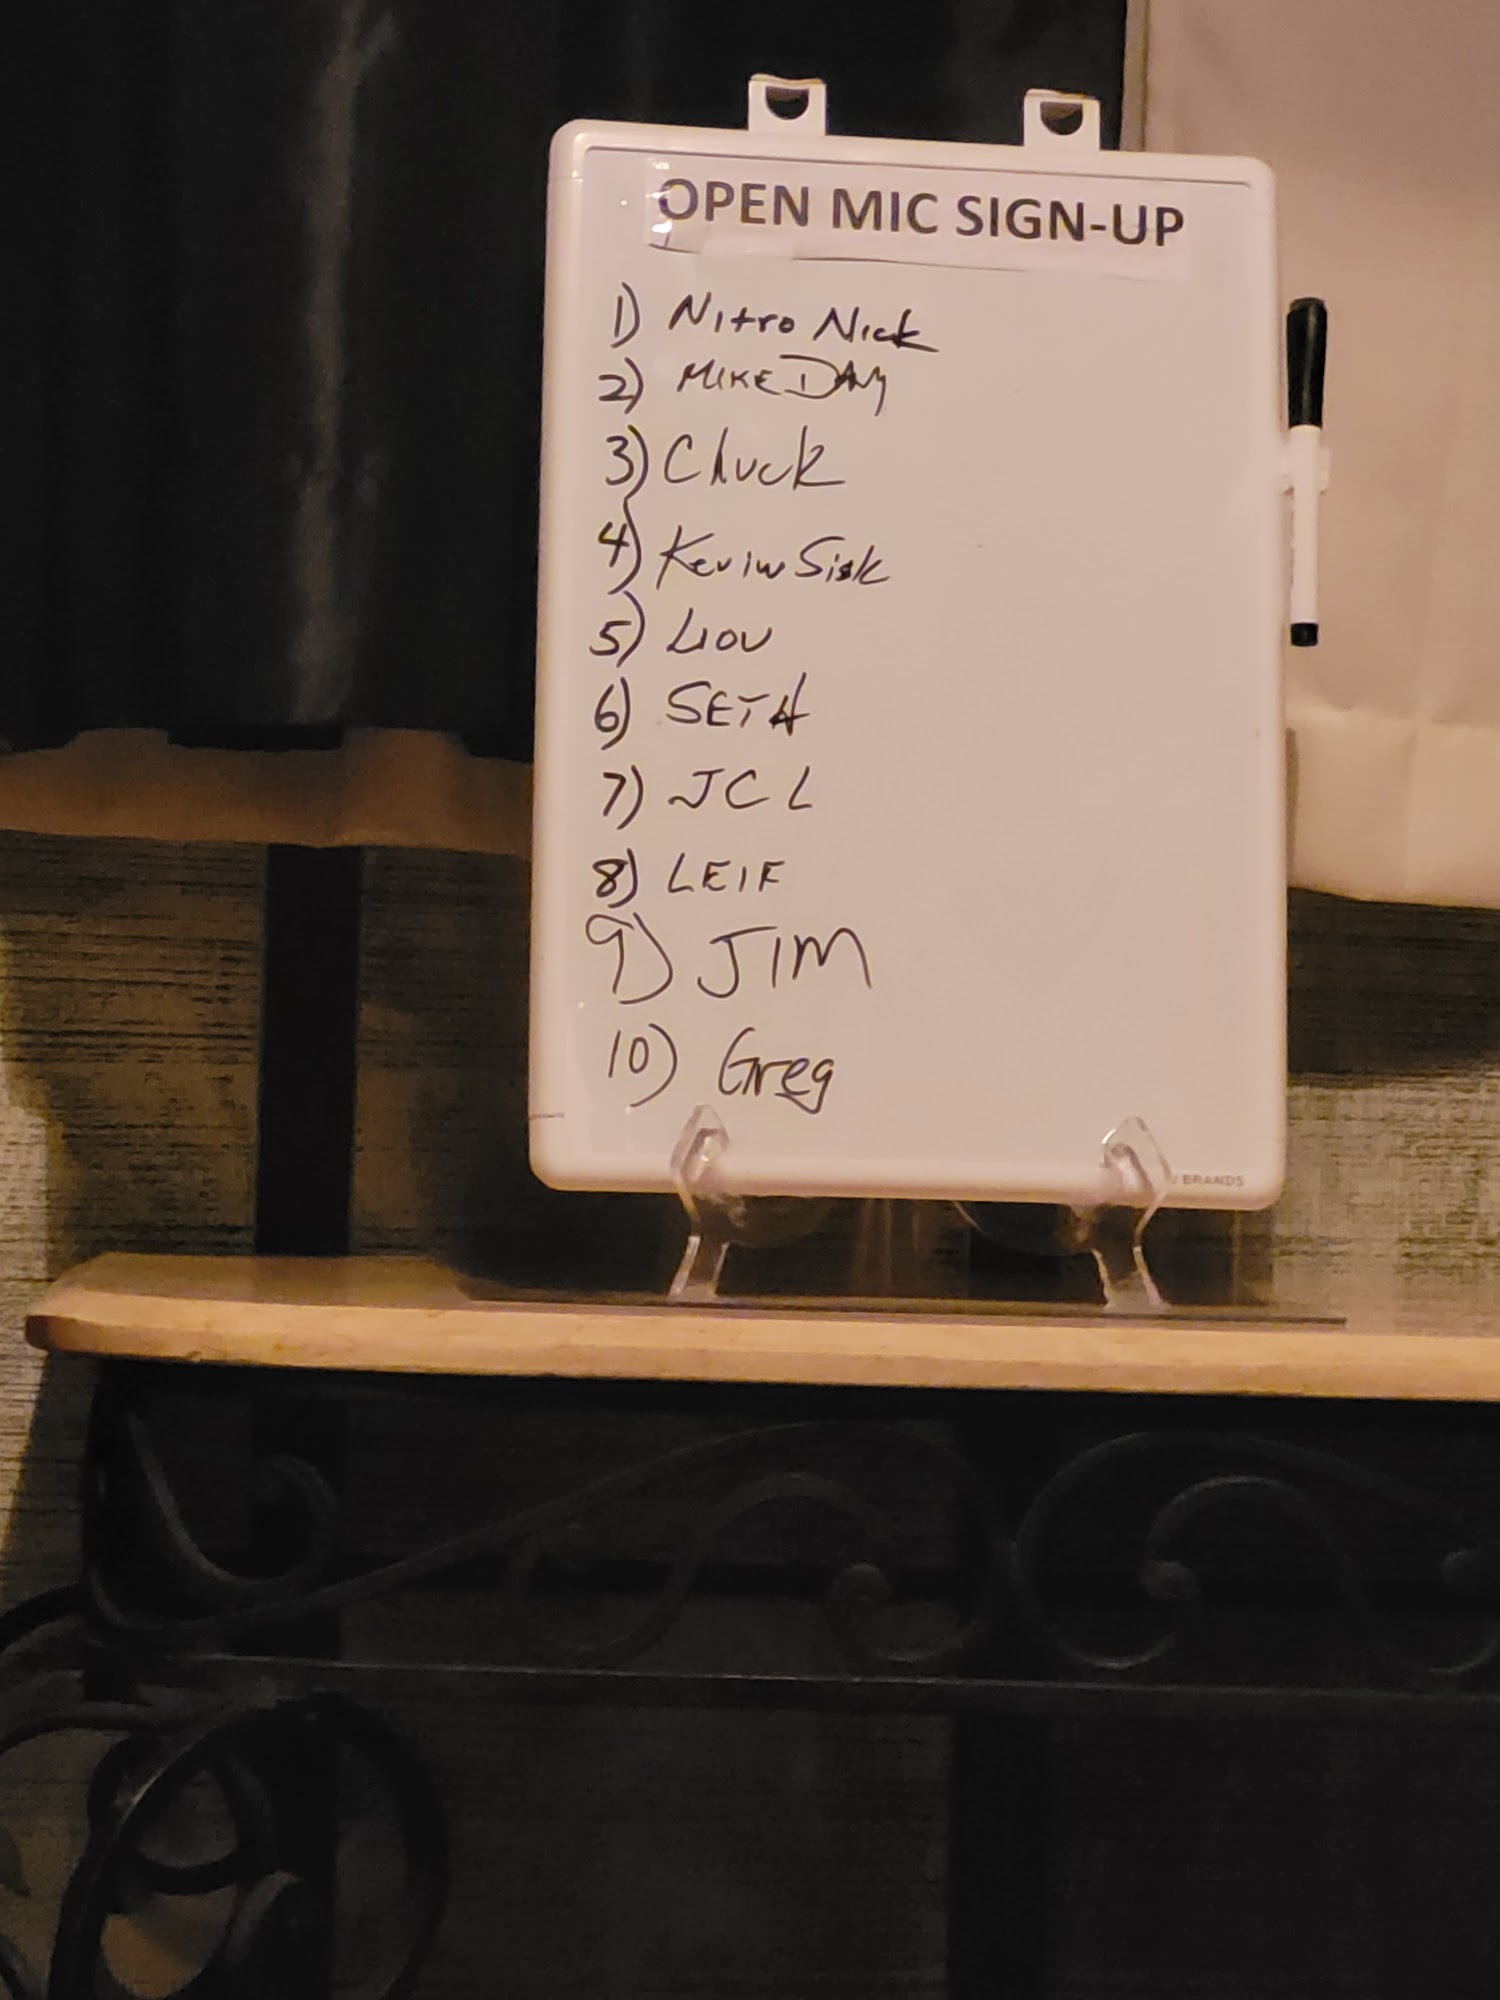 OPEN MIC SIGN-UP
1) Nitro Nick
2) MIKE DAY
3) Chuck
4) Kevin Sisk
5) LIOU
6) SETH
7) JCL
8) LEIF
9) JIM
10) Greg
BRANDS